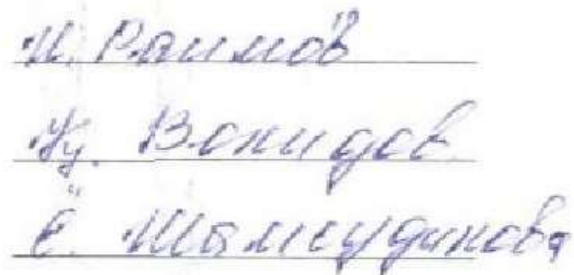 И. Раимов
Чу. Вохидов
Ё. Шамсудинова